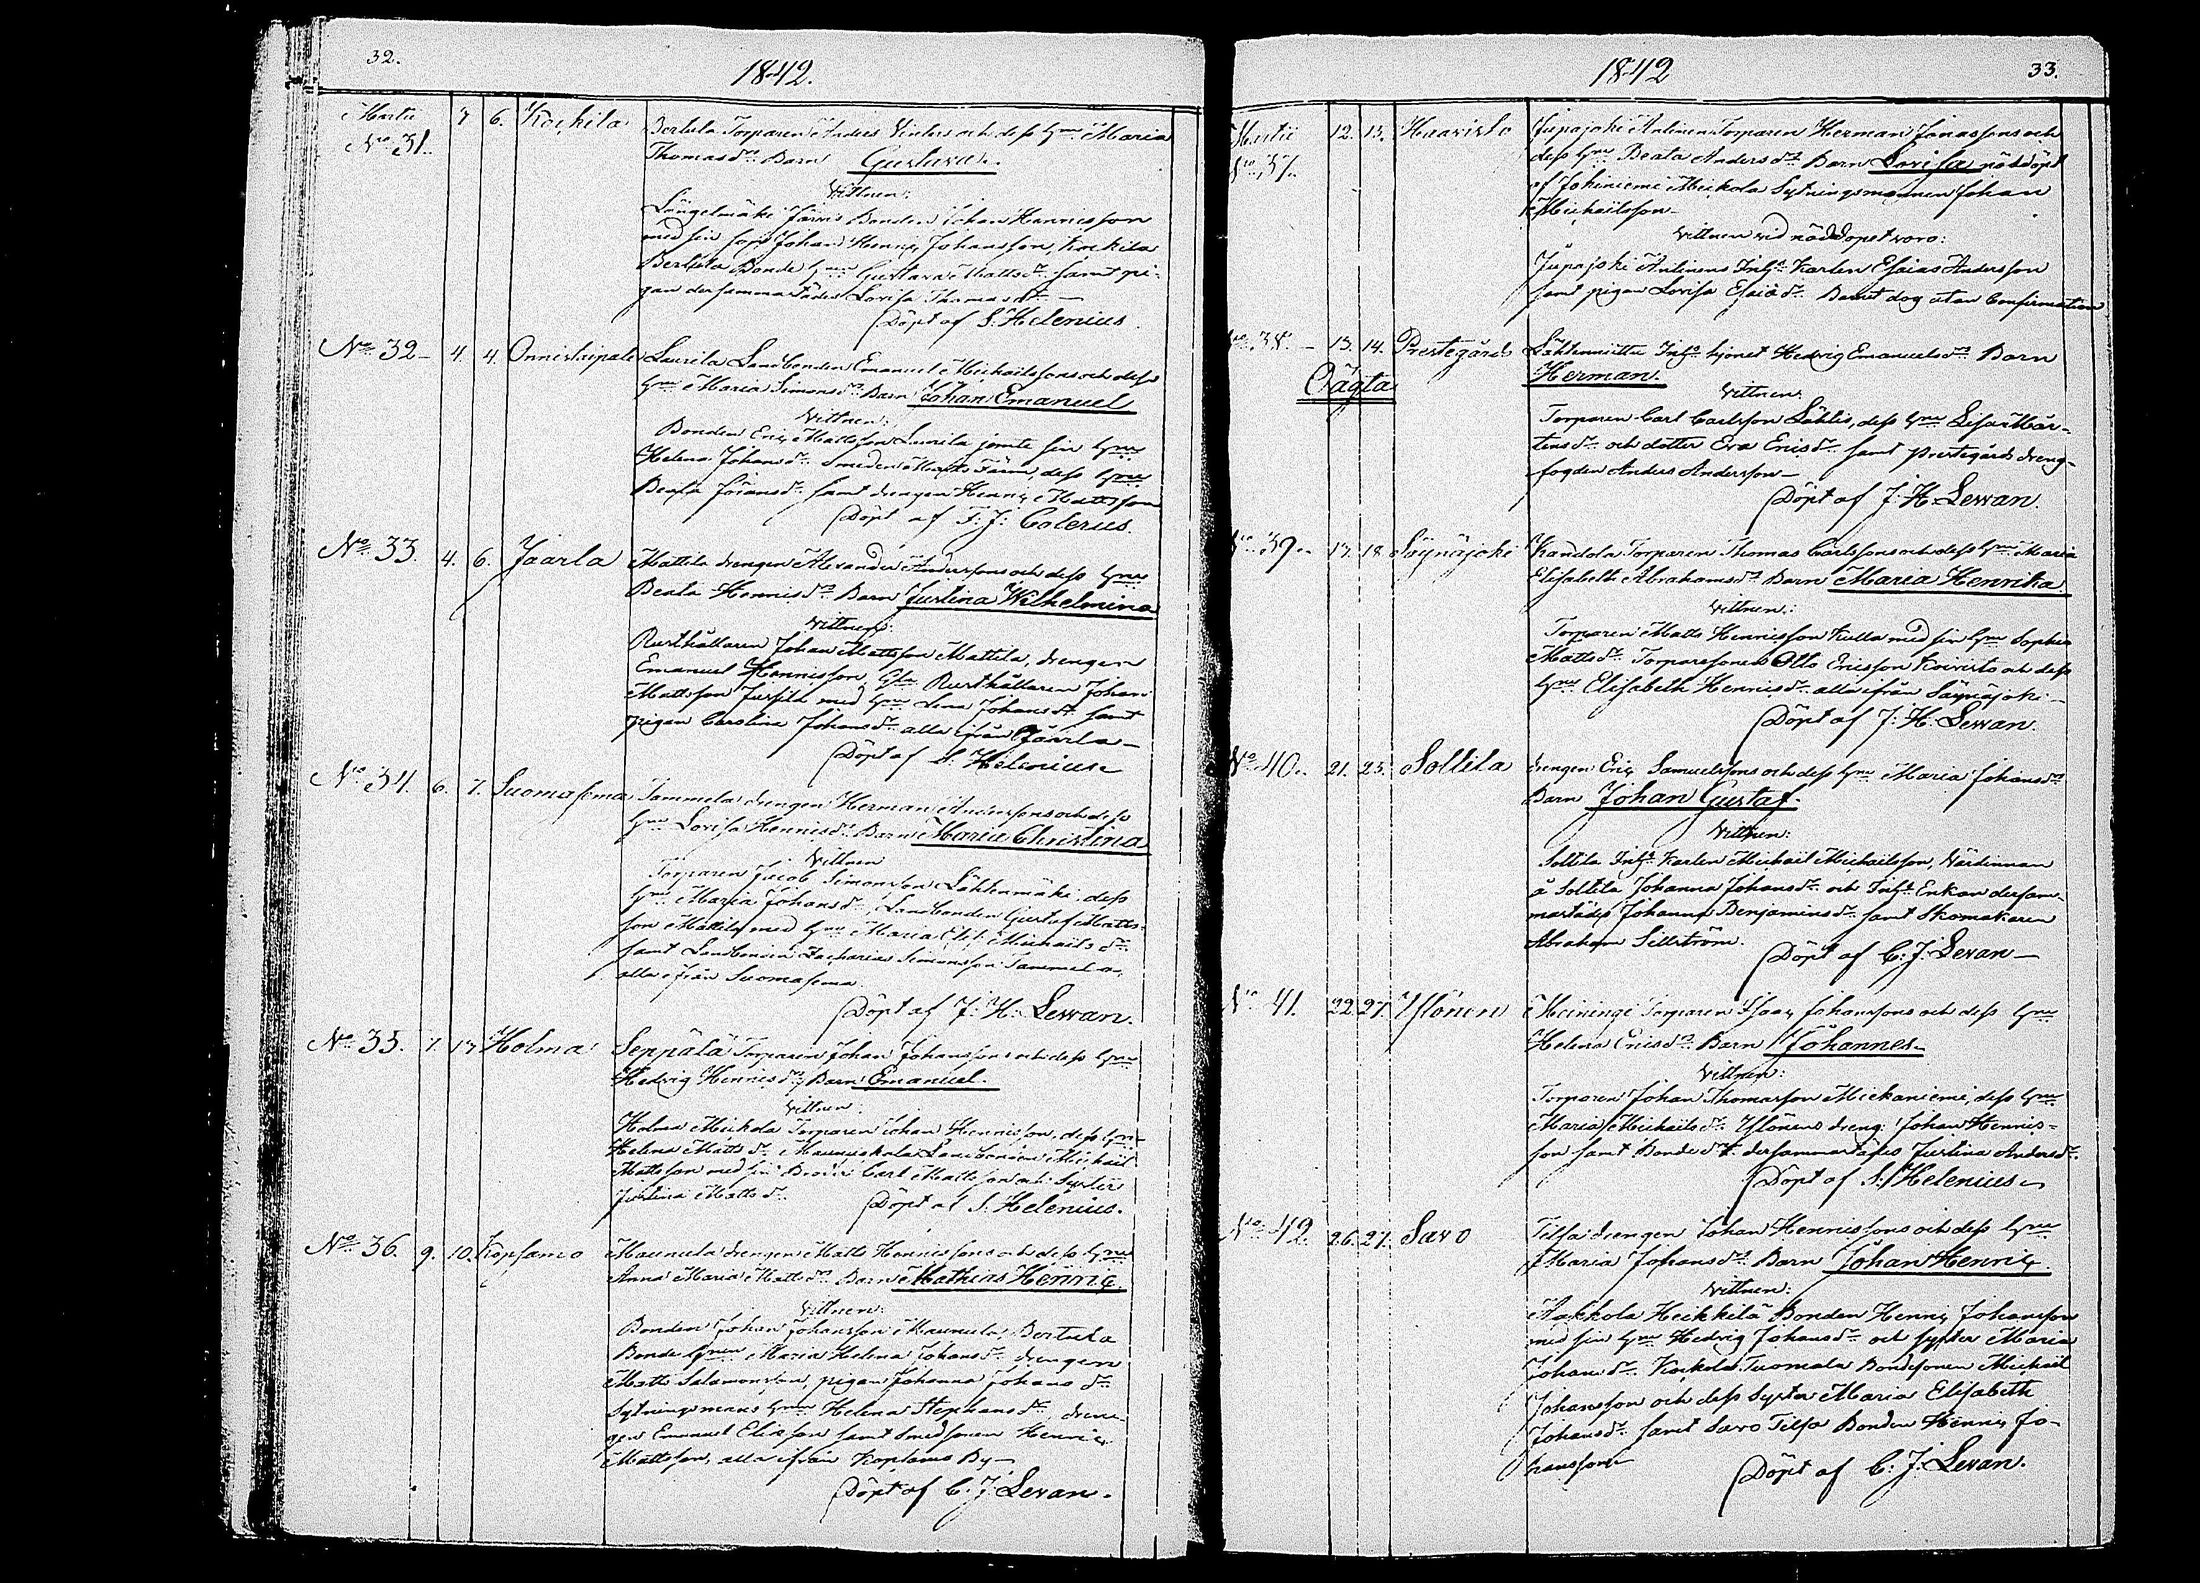 32.
1842.
Martii 7 6. Koskila Bertula Torparen Anders Vinters och dess Hru Maria
No 31. Thomasdrs Barn Gustava.
Vittnen:
Längelmäki Järvis Bonden Johan Henricsson
med sin son Johan Henric Johansson, Koskila
Bertula Bonde Hrun Gustava Mattsdr samt pi-
gan dersammastädes Lovisa Thomasdr
Döpt af S. Helenius.
No 32 4. 4. Laurila Landbonden Emanuel Michailssons och dess
Hru Maria Simonsdrs Barn Johan Emanuel
Vittnen:
Bonden Eric Mattsson Laurila jemte sin Hru
Helena Johansdr Smeden Matts Färm, dess Hru
Beata Göransdr samt drengen Henric Mattsson
Döpt af F. J. Colerus.
No 33. 4. 6. Jaarla Mattila drengen Alexander Anderssons och dess Hru
Beata Henricsdrs Barn Justina Wilhelmina
Vittnen:
Rusthållaren Johan Mattsson Mattila, drengen
Emanuel Henricsson, Rusthållaren Johan
Mattsson Jussila med Hru Lena Johansdr samt
pigan Carolina Johansdr alla ifrån Jaarla
Döpt af S. Helenius
No 34. 6. 7. Suomasema Tammela drengen Herman Anderssons och dess
Hru Lovisa Henricsdrs Barn Maria Christina
Vittnen
Torparen Jacob Simonsson Lähtenmäki, dess
Hru Maria Johansdr, Landbonden Gustaf Matts-
son Mattila med Hru Maria Elis. Michailsdr
samt Landbonden Zacharias Simonsson Tammela
alla ifrån Suomasema
Döpt af J. H. Levan.
No 35. 7. 13 Holma Seppälä Torparen Johan Johanssons och dess Hru
Hedvig Henricsdrs Barn Emanuel.
Vittnen:
Holma Mickola Torparen Johan Henricsson, dess Hru
Helena Mattsdr Maunuskola Landbonden Michail
Mattsson med sin Broder Carl Mattsson och Syster
Justina Mattsdr
Döpt af S. Helenius.
No 36. 9. 10. Kopsamo Maunula drengen Matts Henricssons och dess Hru
Anna Maria Mattsdrs Barn Mathias Henric
Vittnen:
Bonden Johan Johansson Maunula, Bertula
Bonde Hrun Maria Helena Johansdr drengen
Matts Salomonsson, pigan Johanna Johansdr
Sytningsmans Hru Helena Stephansdr, dren-
gen Emanuel Eliasson samt Smedsonen Henric
Mattsson, alla ifrån Kopsamo By
Döpt af C. J. Levan.
1842
33.
Martii 12. 13. Haavisto Jupajoki Anttinen Torparen Herman Jonassons och
No 37. dess Hru Beata Andersdrs Barn Lovisa nöddöpt
af Johiniemi Mickola Sytningsmannen Johan
Michailsson
Vittnen vid nöddopet voro:
Jupajoki Anttinens Inhs Karlen Esaias Andersson
samt pigan Lovisa Esaiædr Barnet dog utan Confirmation
No 38. 13. 14. Prestegårds Lähtenmutka Inhs hjonet Hedvig Emanuelsdrs Barn
Oägta Herman.
Vittnen:
Torparen Carl Carlsson Lähtis, dess Hru Lisa Mår-
tensdr och dotter Eva Ericsdr samt prestegårds dreng-
fogden Anders Andersson
Döpt af J. H. Levan.
No 39. 17. 18. Säynäjoki Kandola Torparen Thomas Carlssons och dess Hru Maria
Elisabeth Abrahamsdrs Barn Maria Henrika.
Vittnen:
Torparen Matts Henricsson Kulla med sin Hru Sophia
Mattsdr Torparesonen Otto Ericsson Koivisto och dess
Hru Elisabeth Henricsdr alla ifrån Säynäjoki
Döpt af J. H. Levan.
No 40. 21. 23. Sollila drengen Eric Samuelssons och dess Hru Maria Johansdrs
Barn Johan Gustaf.
Vittnen:
Sollila Inhs Karlen Michail Michailsson, Värdinnan
å Sollila Johanna Johansdr och Inhs Enkan dersam-
mastädes Johanna Benjaminsdr samt Skomakaren
Abraham Sillström.
Döpt af C. J. Levan
No 41. 22. 27. Ylönen Meiningi Torparen Isaac Johanssons och dess Hru
Helena Ericsdrs Barn Johannes
Vittnen:
Torparen Johan Thomasson Mickaniemi, dess Hru
Maria Michailsdr Ylönens dreng Johan Henrics-
son samt Bondedr dersammastädes Justina Andersdr
Döpt af S. Helenius
No 42. 26. 27. Savo Tilsa drengen Johan Henricssons och dess Hru
Maria Johansdrs Barn Johan Henric.
Vittnen:
Aakkola Heikkilä Bonden Henric Johansson
med sin Hru Hedvig Johansdr och syster Maria
Johansdr Koskola Tuomala Bondesonen Michail
Johansson och dess Syster Maria Elisabeth
Johansdr samt Savo Tilsa Bonden Henric Jo-
hansson
Döpt af C. J. Levan.